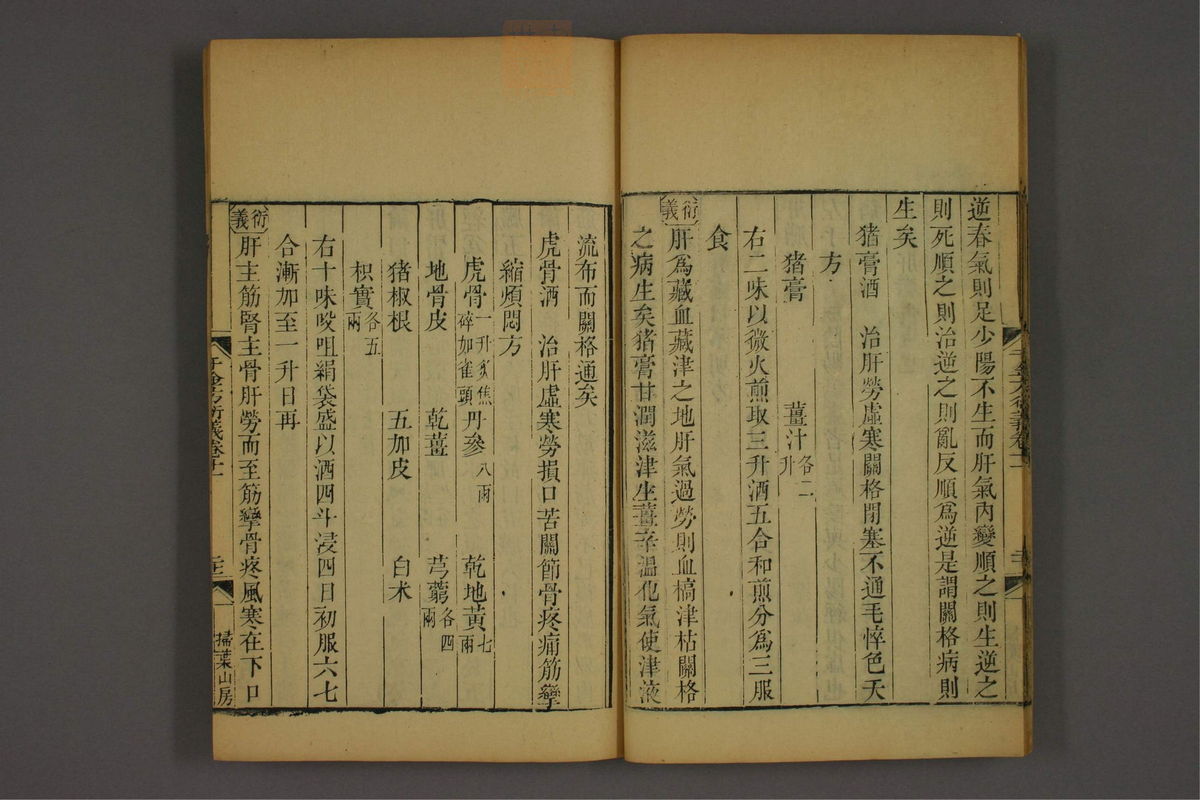 逆春氣則足少陽不生而肝氣內變順之則生逆之
則死順之則治逆之則亂反順爲逆是謂關格病則
生矣
猪膏酒 治肝勞虛寒關格閉塞不通毛悴色夭
方
猪膏 薑汁各二升
右二味以微火煎取三升酒五合和煎分爲三服
食
衍義 肝爲藏血藏津之地肝氣過勞則血槁津枯關格
之病生矣猪膏甘潤滋津生薑辛溫化氣使津液
流布而關格通矣
虎骨酒 治肝虛寒勞損口苦關節骨疼痛筋攣
縮煩悶方
虎骨一升炙焦碎如雀頭 丹參八兩 乾地黃七兩
地骨皮 乾薑 芎藭各四兩
猪椒根 五加皮 白朮
枳實各五兩
右十味㕮咀絹袋盛以酒四斗浸四日初服六七
合漸加至一升日再
衍義 肝主筋腎主骨肝勞而至筋攣骨疼風寒在下口
千金方衍義卷十一
掃葉山房